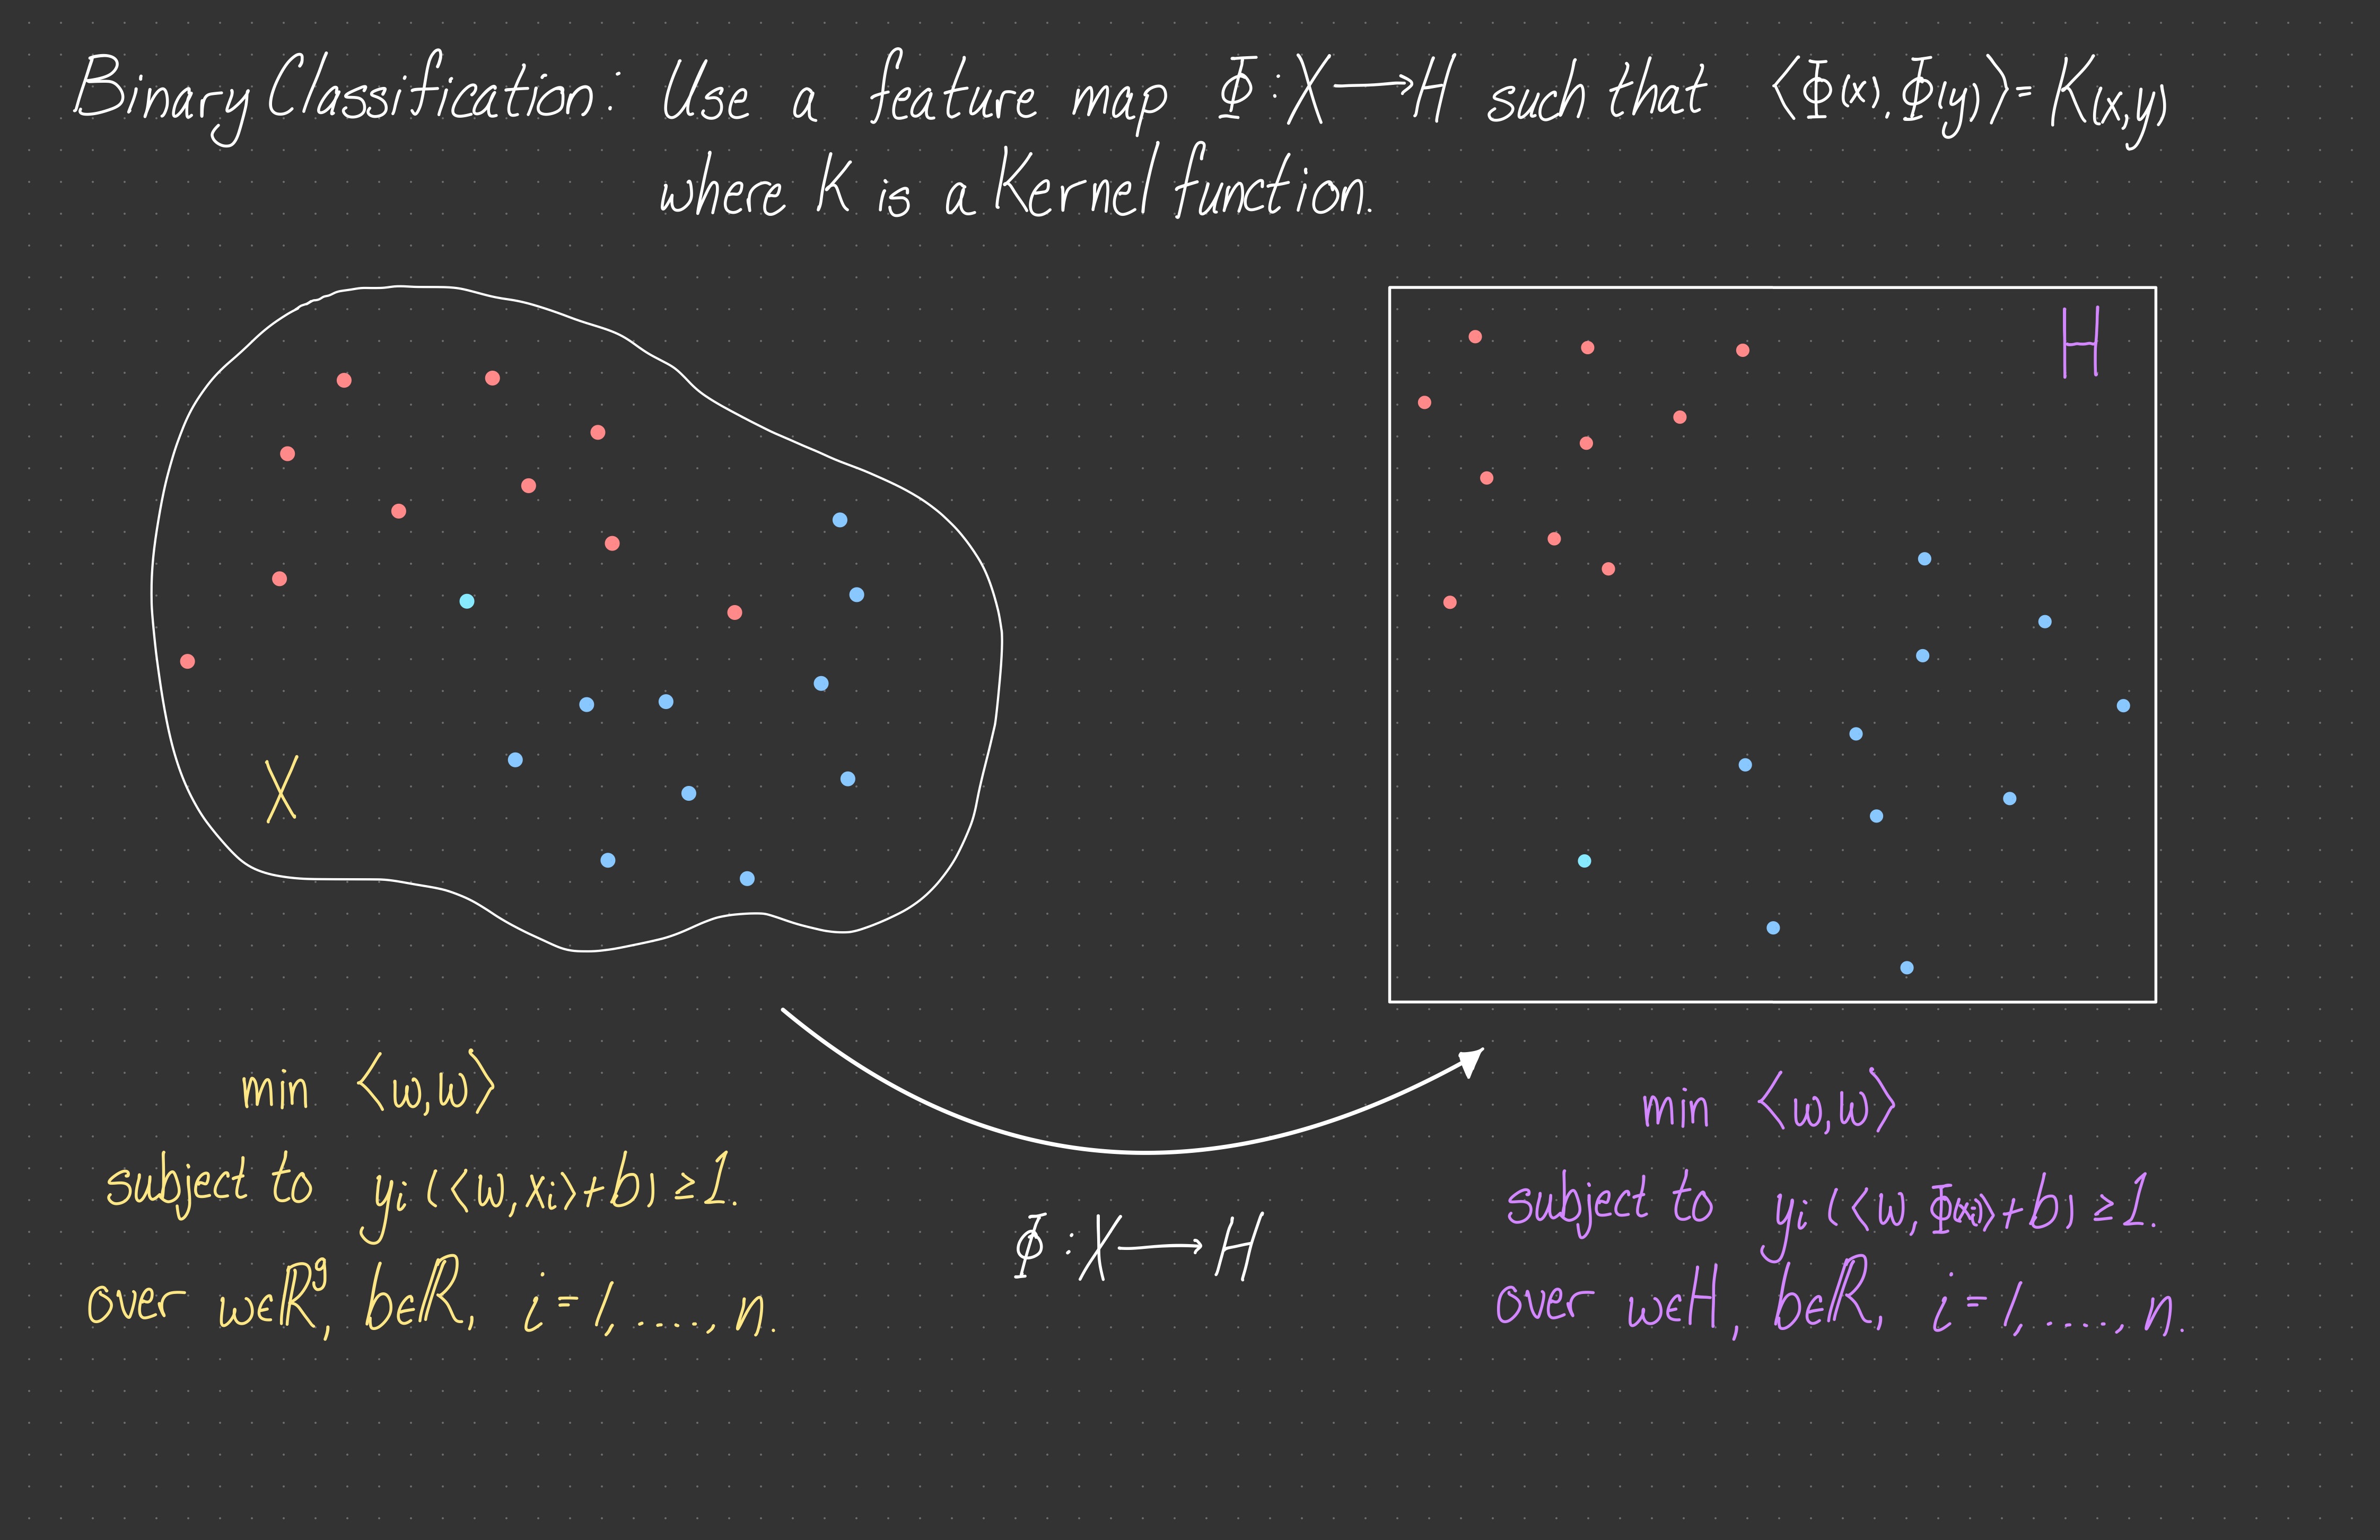 Binary Classification: Use a feature map Φ:X→H such that ⟨Φ(x),Φ(y)⟩=K(x,y)
where K is a Kernel function.
H
X
min ⟨w,w⟩
subject to yᵢ(⟨w,xᵢ⟩+b)≥1.
over w∈ℝ⁹, b∈ℝ, i=1,....,n.
Φ:X→H
min ⟨w,w⟩
subject to yᵢ(⟨w,Φ(xᵢ)⟩+b)≥1.
over w∈H, b∈ℝ, i=1,....,n.